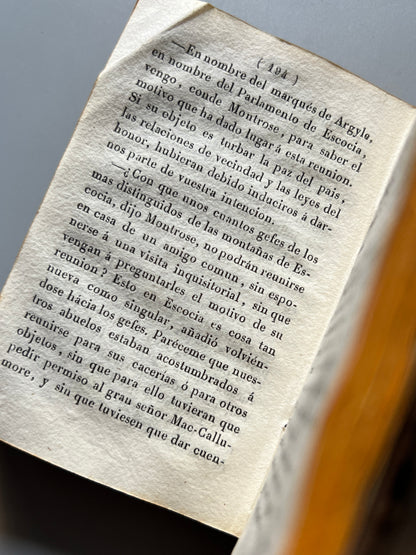 ( 194 )
—En nombre del marqués de Argyle,
en nombre del Parlamento de Escocia,
vengo, conde Montrose, para saber el
motivo que ha dado lugar á esta reunion.
Si su objeto es turbar la paz del pais,
las relaciones de vecindad y las leyes del
honor, hubieran debido induciros á dar-
nos parte de vuestra intencion.
—¿Con que unos cuantos gefes de los
mas distinguidos de las montañas de Es-
cocia, dijo Montrose, no podrán reunirse
en casa de un amigo comun, sin espo-
nerse á una visita inquisitorial, sin que
vengan á preguntarles el motivo de su
reunion? Esto en Escocia es cosa tan
nueva como singular, añadió volvién-
dose hácia los gefes. Paréceme que nues-
tros abuelos estaban acostumbrados á
reunirse para sus cacerías ó para otros
objetos, sin que para ello tuvieran que
pedir permiso al gran señor Mac-Callu-
more, y sin que tuviesen que dar cuen-